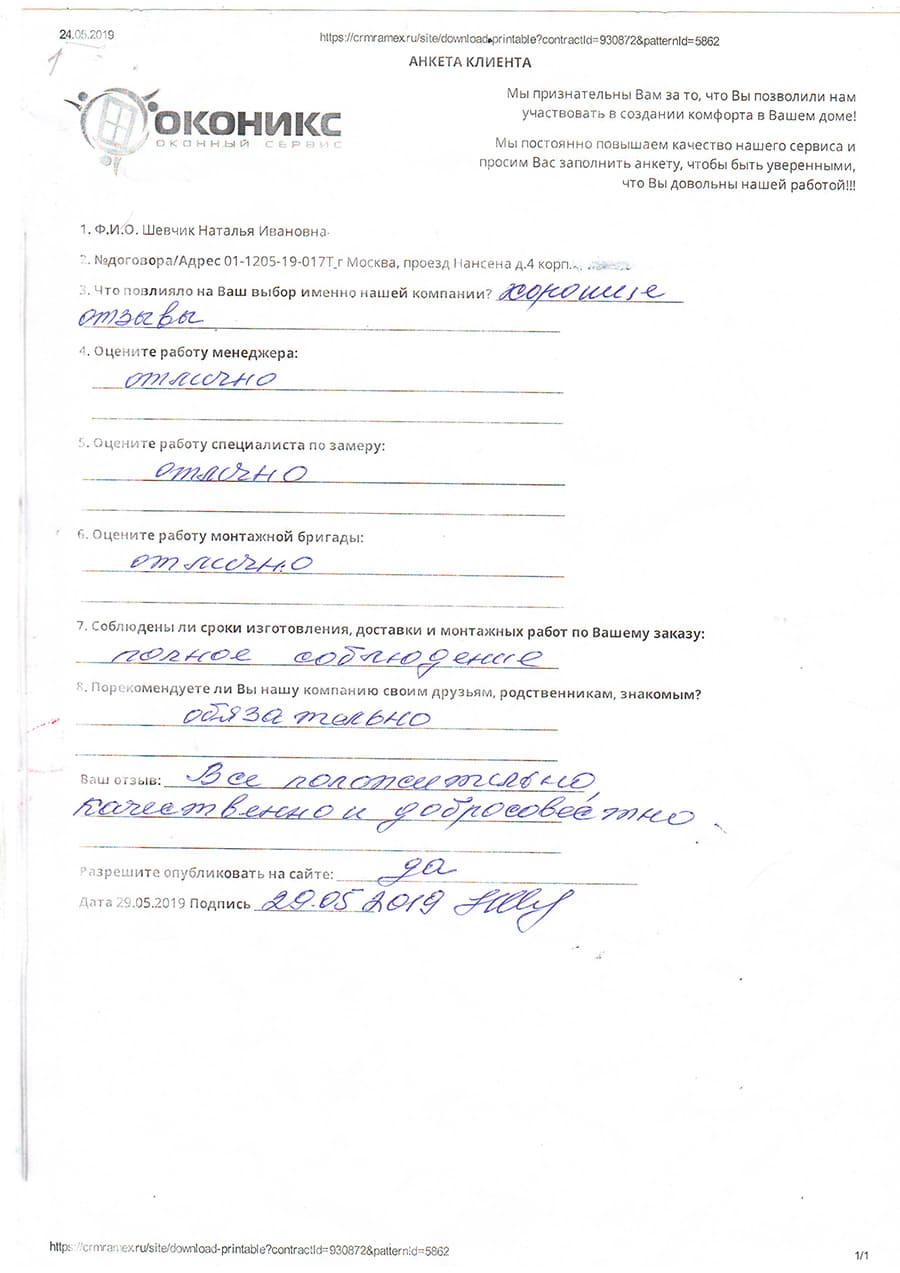 24.05.2019
https://crmramex.ru/site/download-printable?contractId=930872&patternId=5862
1
АНКЕТА КЛИЕНТА
ОКОНИКС
ОКОННЫЙ СЕРВИС
Мы признательны Вам за то, что Вы позволили нам
участвовать в создании комфорта в Вашем доме!
Мы постоянно повышаем качество нашего сервиса и
просим Вас заполнить анкету, чтобы быть уверенными,
что Вы довольны нашей работой!!!
1. Ф.И.О. Шевчик Наталья Ивановна
2. №договора/Адрес 01-1205-19-017Т_г Москва, проезд Нансена д.4 корп.
3. Что повлияло на Ваш выбор именно нашей компании? хорошие
отзывы
4. Оцените работу менеджера:
отлично
5. Оцените работу специалиста по замеру:
отлично
6. Оцените работу монтажной бригады:
отлично
7. Соблюдены ли сроки изготовления, доставки и монтажных работ по Вашему заказу:
полное соблюдение
8. Порекомендуете ли Вы нашу компанию своим друзьям, родственникам, знакомым?
обязательно
Ваш отзыв: Все положительно,
качественно и добросовестно
Разрешите опубликовать на сайте: да
Дата 29.05.2019 Подпись 29.05 2019
https://crmramex.ru/site/download-printable?contractId=930872&patternId=5862
1/1